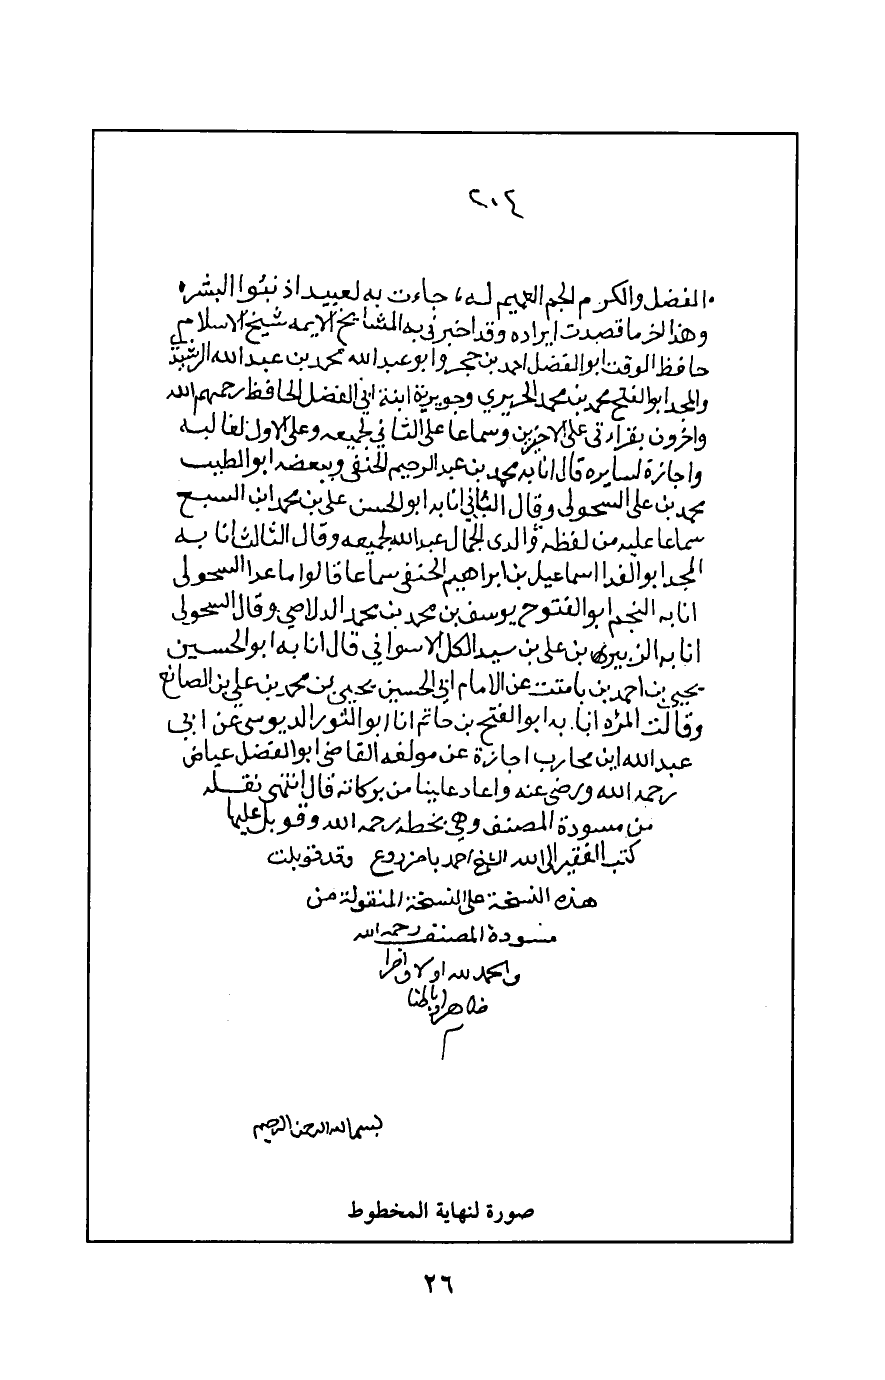 ٢٠٤
المفضل والكرم الجم العميم له، جاءت به لعبيد اذ نبئوا البشره
وهذا اخر ما قصدت ايراده وقد اخبرني به المشايخ الايمه شيخ الاسلام
حافظ الوقت ابو الفضل احمد بن حجر وابو عبد الله محمد بن عبد الله الرشيدي
والمجد ابو الفتح محمد بن محمد الحريري وجويرية ابنة ابي الفضل الحافظ رحمهم الله
واخرون بقراءتي على الاخرين وسماعا على الثاني لجميعه وعلى الاول لغالبه
واجازة لسايره قال انا به محمد بن عبد الرحيم الحنفي وببعضه ابو الطيب
محمد بن على السحولى وقال الثاني انا به ابو الحسن على بن محمد ابن السبع
سماعا عليه من لفظه والدى الجمال عبد الله لجميعه وقال الثالث انا به
المجد ابو الفدا اسماعيل بن ابراهيم الحنفي سماعا قالوا ما عدا السحولى
انا به النجم ابو الفتوح يوسف بن محمد بن محمد الدلاصي وقال السحولى
انا به الزبير بن على بن سيد الكل الاسواني قال انا به ابو الحسين
يحيى بن احمد بن بامتت عن الامام ابي الحسين يحيى بن محمد بن على بن الصانع
وقالت المرٔه انا به ابو الفتح بن حاتم انا ابو الثور الديوسي عن ابي
عبد الله ابن محارب اجازة عن مولفه القاضي ابو الفضل عياض
رحمه الله ورضي عنه واعاد علينا من بركاته قال انتهى نقله
من مسودة المصنف وهي بخطه رحمه الله وقوبل عليها
كتب الفقير الى الله الشيخ احمد بامزروع وقد قوبلت
هذه النسخة على النسخة المنقولة من
مسودة المصنف رحمه الله
والحمد لله اولا واخرا
ظاهرا وباطنا
م
بسم الله الرحمن الرحيم
صورة لنهاية المخطوط
٢٦